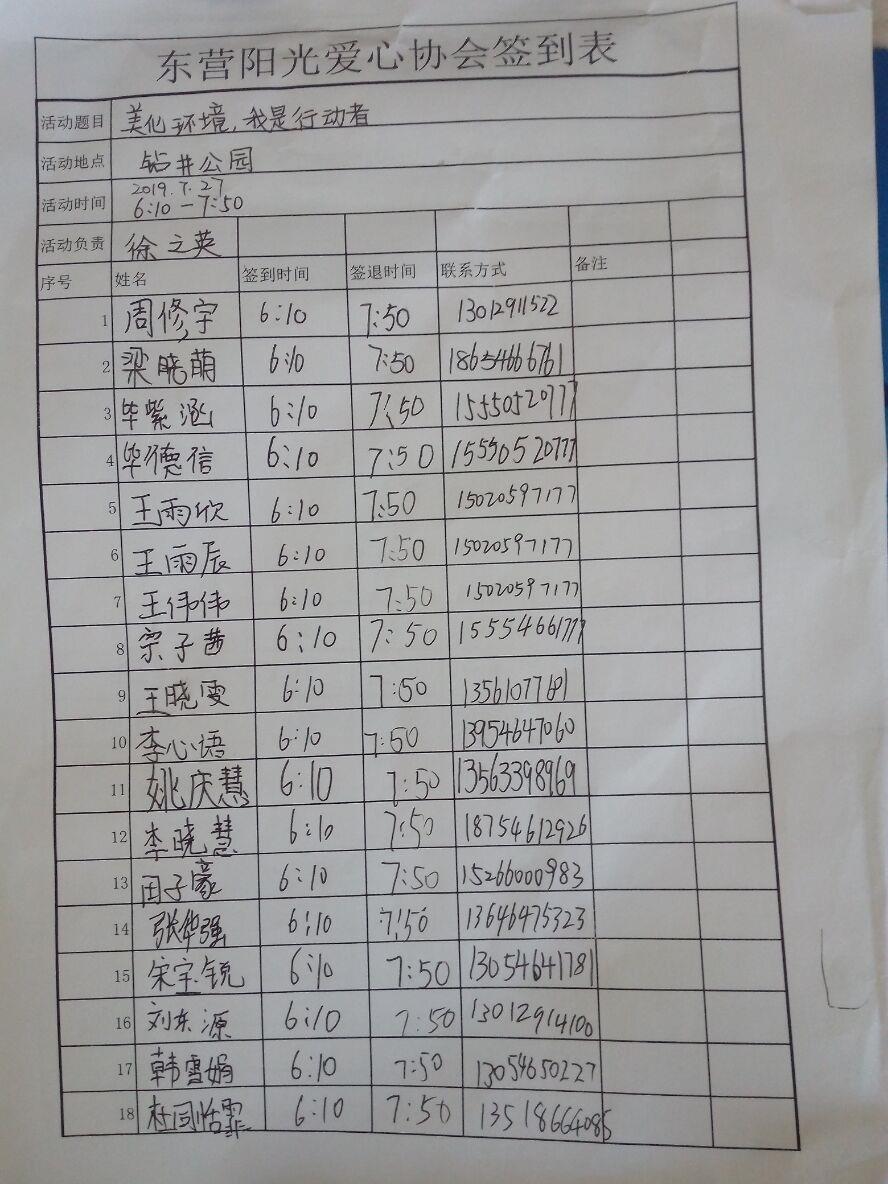 东营阳光爱心协会签到表
活动题目 美化环境,我是行动者
活动地点 钻井公园
活动时间 2019.7.27
6:10-7:50
活动负责 徐之英
序号 姓名 签到时间 签退时间 联系方式 备注
1 周修宇 6:10 7:50 13012911522
2 梁晓萌 6:10 7:50 18654666761
3 毕紫涵 6:10 7:50 15550520777
4 毕德信 6:10 7:50 15550520777
5 王雨欣 6:10 7:50 15020597177
6 王雨辰 6:10 7:50 15020597177
7 王伟伟 6:10 7:50 15020597177
8 宗子茜 6:10 7:50 15554661777
9 王晓雯 6:10 7:50 13561077681
10 李心语 6:10 7:50 13954647060
11 姚庆慧 6:10 7:50 13563398969
12 李晓慧 6:10 7:50 18754612926
13 田子豪 6:10 7:50 15266000983
14 张华强 6:10 7:50 13646475323
15 宋宝锐 6:10 7:50 13054641781
16 刘东源 6:10 7:50 13012914100
17 韩雪娟 6:10 7:50 13054650227
18 杜闫恬霏 6:10 7:50 13518664085